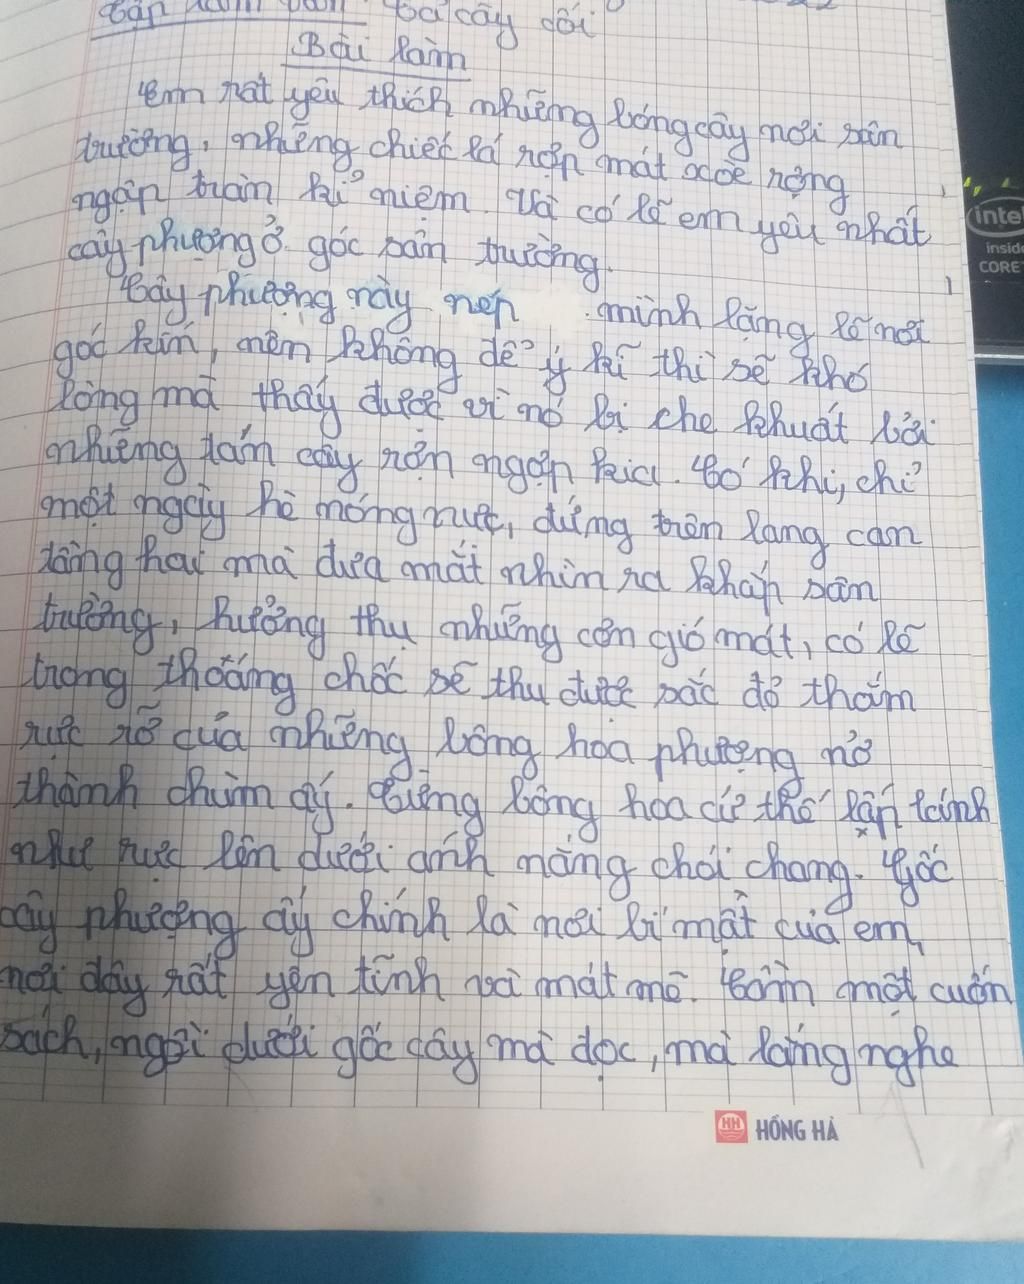 Tập làm văn: Tả cây cối
Bài làm
Em rất yêu thích những bóng cây nơi sân
trường, những chiếc lá rợn mát xoè rộng
ngập tràn kỉ niệm. Và có lẽ em yêu nhất
cây phượng ở góc sân trường.
Cây phượng này nép mình lặng lẽ nơi
góc kín, nên không để ý kĩ thì sẽ khó
lòng mà thấy được vì nó bị che khuất bởi
những tán cây rợn ngợp kia. Có khi, chỉ
một ngày hè nóng nực, đứng trên lang can
tầng hai mà đưa mắt nhìn ra khắp sân
trường, hưởng thụ những cơn gió mát, có lẽ
trong thoáng chốc sẽ thu được sắc đỏ thắm
rực rỡ của những bông hoa phượng nở
thành chùm ấy. Từng bông hoa cứ thế lấp lánh
như rực lên dưới ánh nắng chói chang. Gốc
cây phượng ấy chính là nơi bí mật của em,
nơi đây rất yên tĩnh và mát mẻ. Cầm một cuốn
sách, ngồi dưới gốc cây mà đọc, mà lắng nghe
HỒNG HÀ
intel
inside
CORE